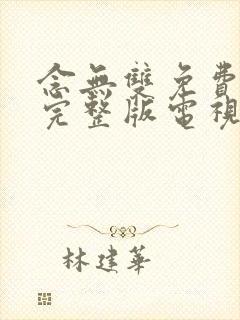 念無雙免費
完整版電視
林建華